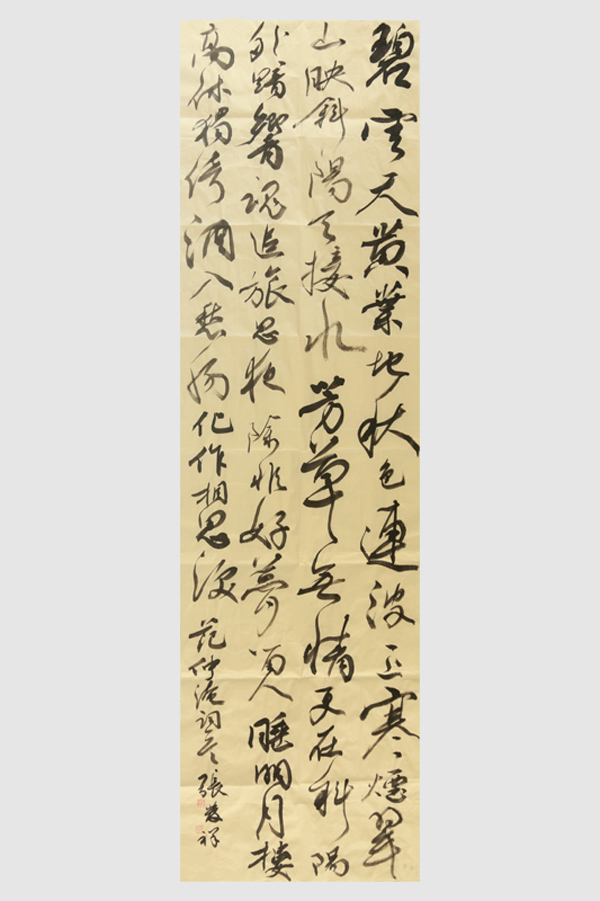 碧雲天黃葉地秋色連波上寒煙翠
山映斜陽天接水芳草無情更在斜陽
外黯響魂追旅思夜除非好夢留人睡明月樓
高休獨倚酒入愁腸化作相思淚
范仲淹詞 張祥